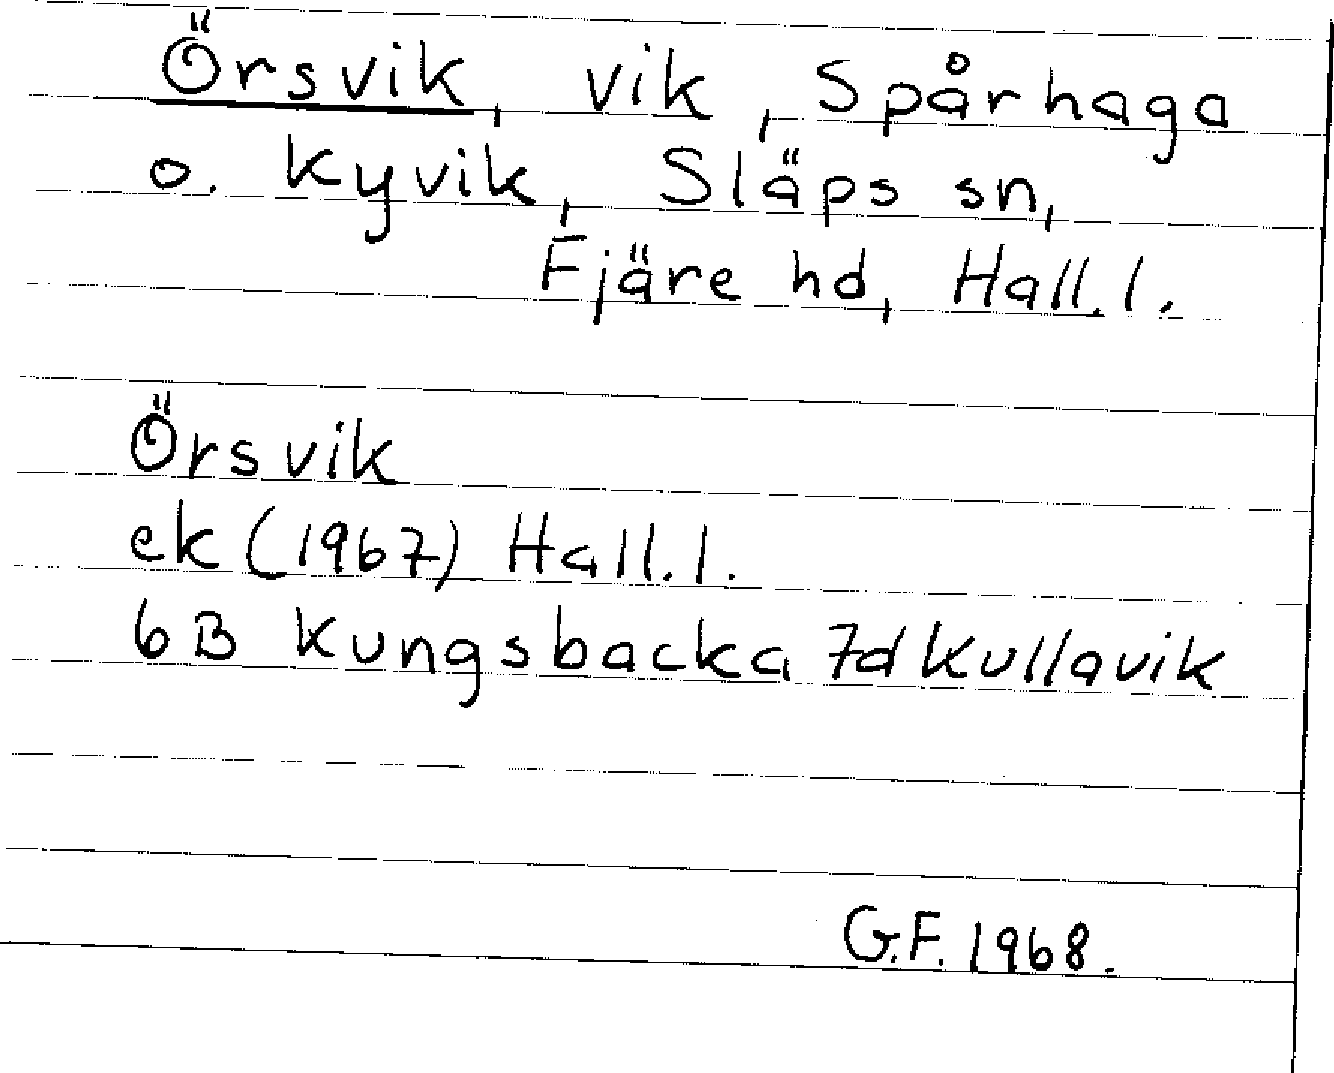 Örsvik, vik, Spårhaga
o. Kyvik, Släps sn,
Fjäre hd, Hall. l.
Örsvik
ek (1967) Hall. l.
6B Kungsbacka 7d Kullavik
G.F. 1968.